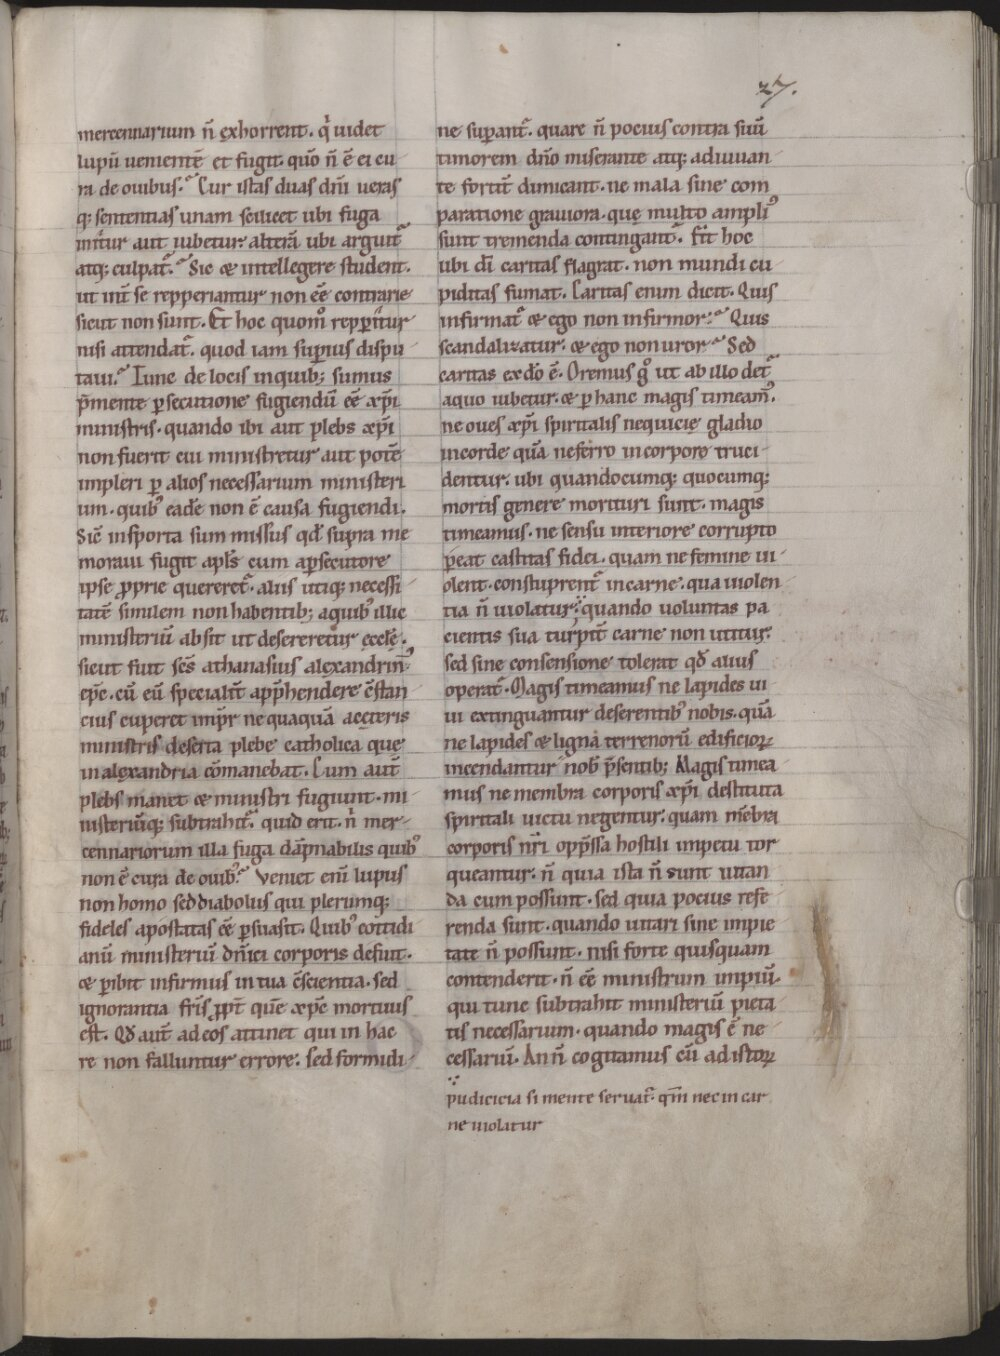 27.
mercennarium ñ ęxhorrent. q̍ uidet
lupū uenientē et fugit. quō ñ ē ei cu
ra de ouibus. Cur istas duas dn̄i ueras
q; sententias unam scilicet ubi fuga
init̄tur aut iubetur. alterā ubi arguit᷑
atq; culpat᷑. Sic & intellegere student.
ut int̄ se repperiantur non eē contrarie
sicut non sunt. Et hoc quom̊ repperi̍tur
nisi attendat᷑. quod iam sup̲ius dispu
taui. Tunc de locis in quib; sumus
p̄mente p̲secutione fugiendū eē xp̄i
ministris. quando ibi aut plebs xp̄i
non fuerit cui ministretur aut potē
impleri p̲ alios necessarium ministeri
um. quib᾽ eadē non ē causa fugiendi.
Sic̄ in sporta sum missus qd̄ supra me
moraui fugit apl̄s cum a p̲secutore
ipse p̲prie quereret᷑. aliis utiq; necessi
tatē similem non habentib; a quib᾽ illic
ministeriū absit ut desereretur ęcclę.
sicut fuit sc̄s athanasius alęxandrin᾽
ep̄c. cū eū specialit̄ app̄hendere c̄stan
cius cuperet imp̄r ne quaquā a cęteris
ministris deserta plebe catholica quę
in alęxandria cōmanebat. Cum aut̄
plebs manet & ministri fugiunt. mi
nisteriūq; subtrahit᷑. quid erit. n̍ mer
cennariorum illa fuga dāpnabilis quib᾽
non ē cura de ouib᾽. Veniet eni̅ lupus
non homo sed diabolus qui plerumq;
fideles apostatas eē p̲suasit. Quib᾽ cottidi
anū ministeriū dn̄ici corporis defuit.
& p̲ibit infirmus in tua c̄scientia. sed
ignorantia fr̄is p̲pt̄ quē xp̄c mortuus
est. Qd̄ aut̄ ad eos attinet qui in hac
re non falluntur errore. sed formidi
ne sup̲ant᷑. quare ñ pocius contra suū
timorem dn̄o miserante atq; adiuuan
te fortit̄ dimicant. ne mala sine com
paratione grauiora. quę multo ampli᾽
sunt tremenda contingant᷑. Fit̄ hoc
ubi dī caritas flagrat. non mundi cu
piditas fumat. Caritas enim dicit. Quis
infirmat᷑ & ego non infirmor. Quis
scandalizatur. & ego non uror. Sed
caritas ex dō ē. Oremus g̊ ut ab illo det᷑
a quo iubetur. & p̲ hanc magis timeam᾽.
ne oues xp̄i spiritalis nequicię gladio
in corde quā ne ferro in corpore truci
dentur. ubi quandocumq; quocumq;
mortis genere morituri sunt. magis
timeamus. ne sensu interiore corrupto
p̲eat castitas fidei. quam ne femine ui
olent̄ constuprent᷑ in carne. qua uiolen
tia ñ uiolatur. quando uoluntas pa
cientis sua turpit̄ carne non utitur.
sed sine consensione tolerat qd̄ alius
operat᷑. Magis timeamus ne lapides ui
ui extinguantur deserentib᾽ nobis. quā
ne lapides & ligna terrenorū edificioꝝ
incendantur nob̄ p̄sentib; Magis timea
mus ne membra corporis xp̄i destituta
spiritali uictu negentur. quam mēbra
corporis nr̄i opp̄ssa hostili impetu tor
queantur. ñ quia ista ñ sunt uitan
da cum possunt. sed quia pocius refe
renda sunt. quando uitari sine impie
tate ñ possunt. nisi forte quisquam
contenderit. ñ eē ministrum impiū.
qui tunc subtrahit ministeriū pieta
tis necessarium. quando magis ē ne
cessariū. An ñ cogitamus cū ad istoꝝ
pudicicia si mente seruat᷑. qm̄ nec in car
ne uiolatur